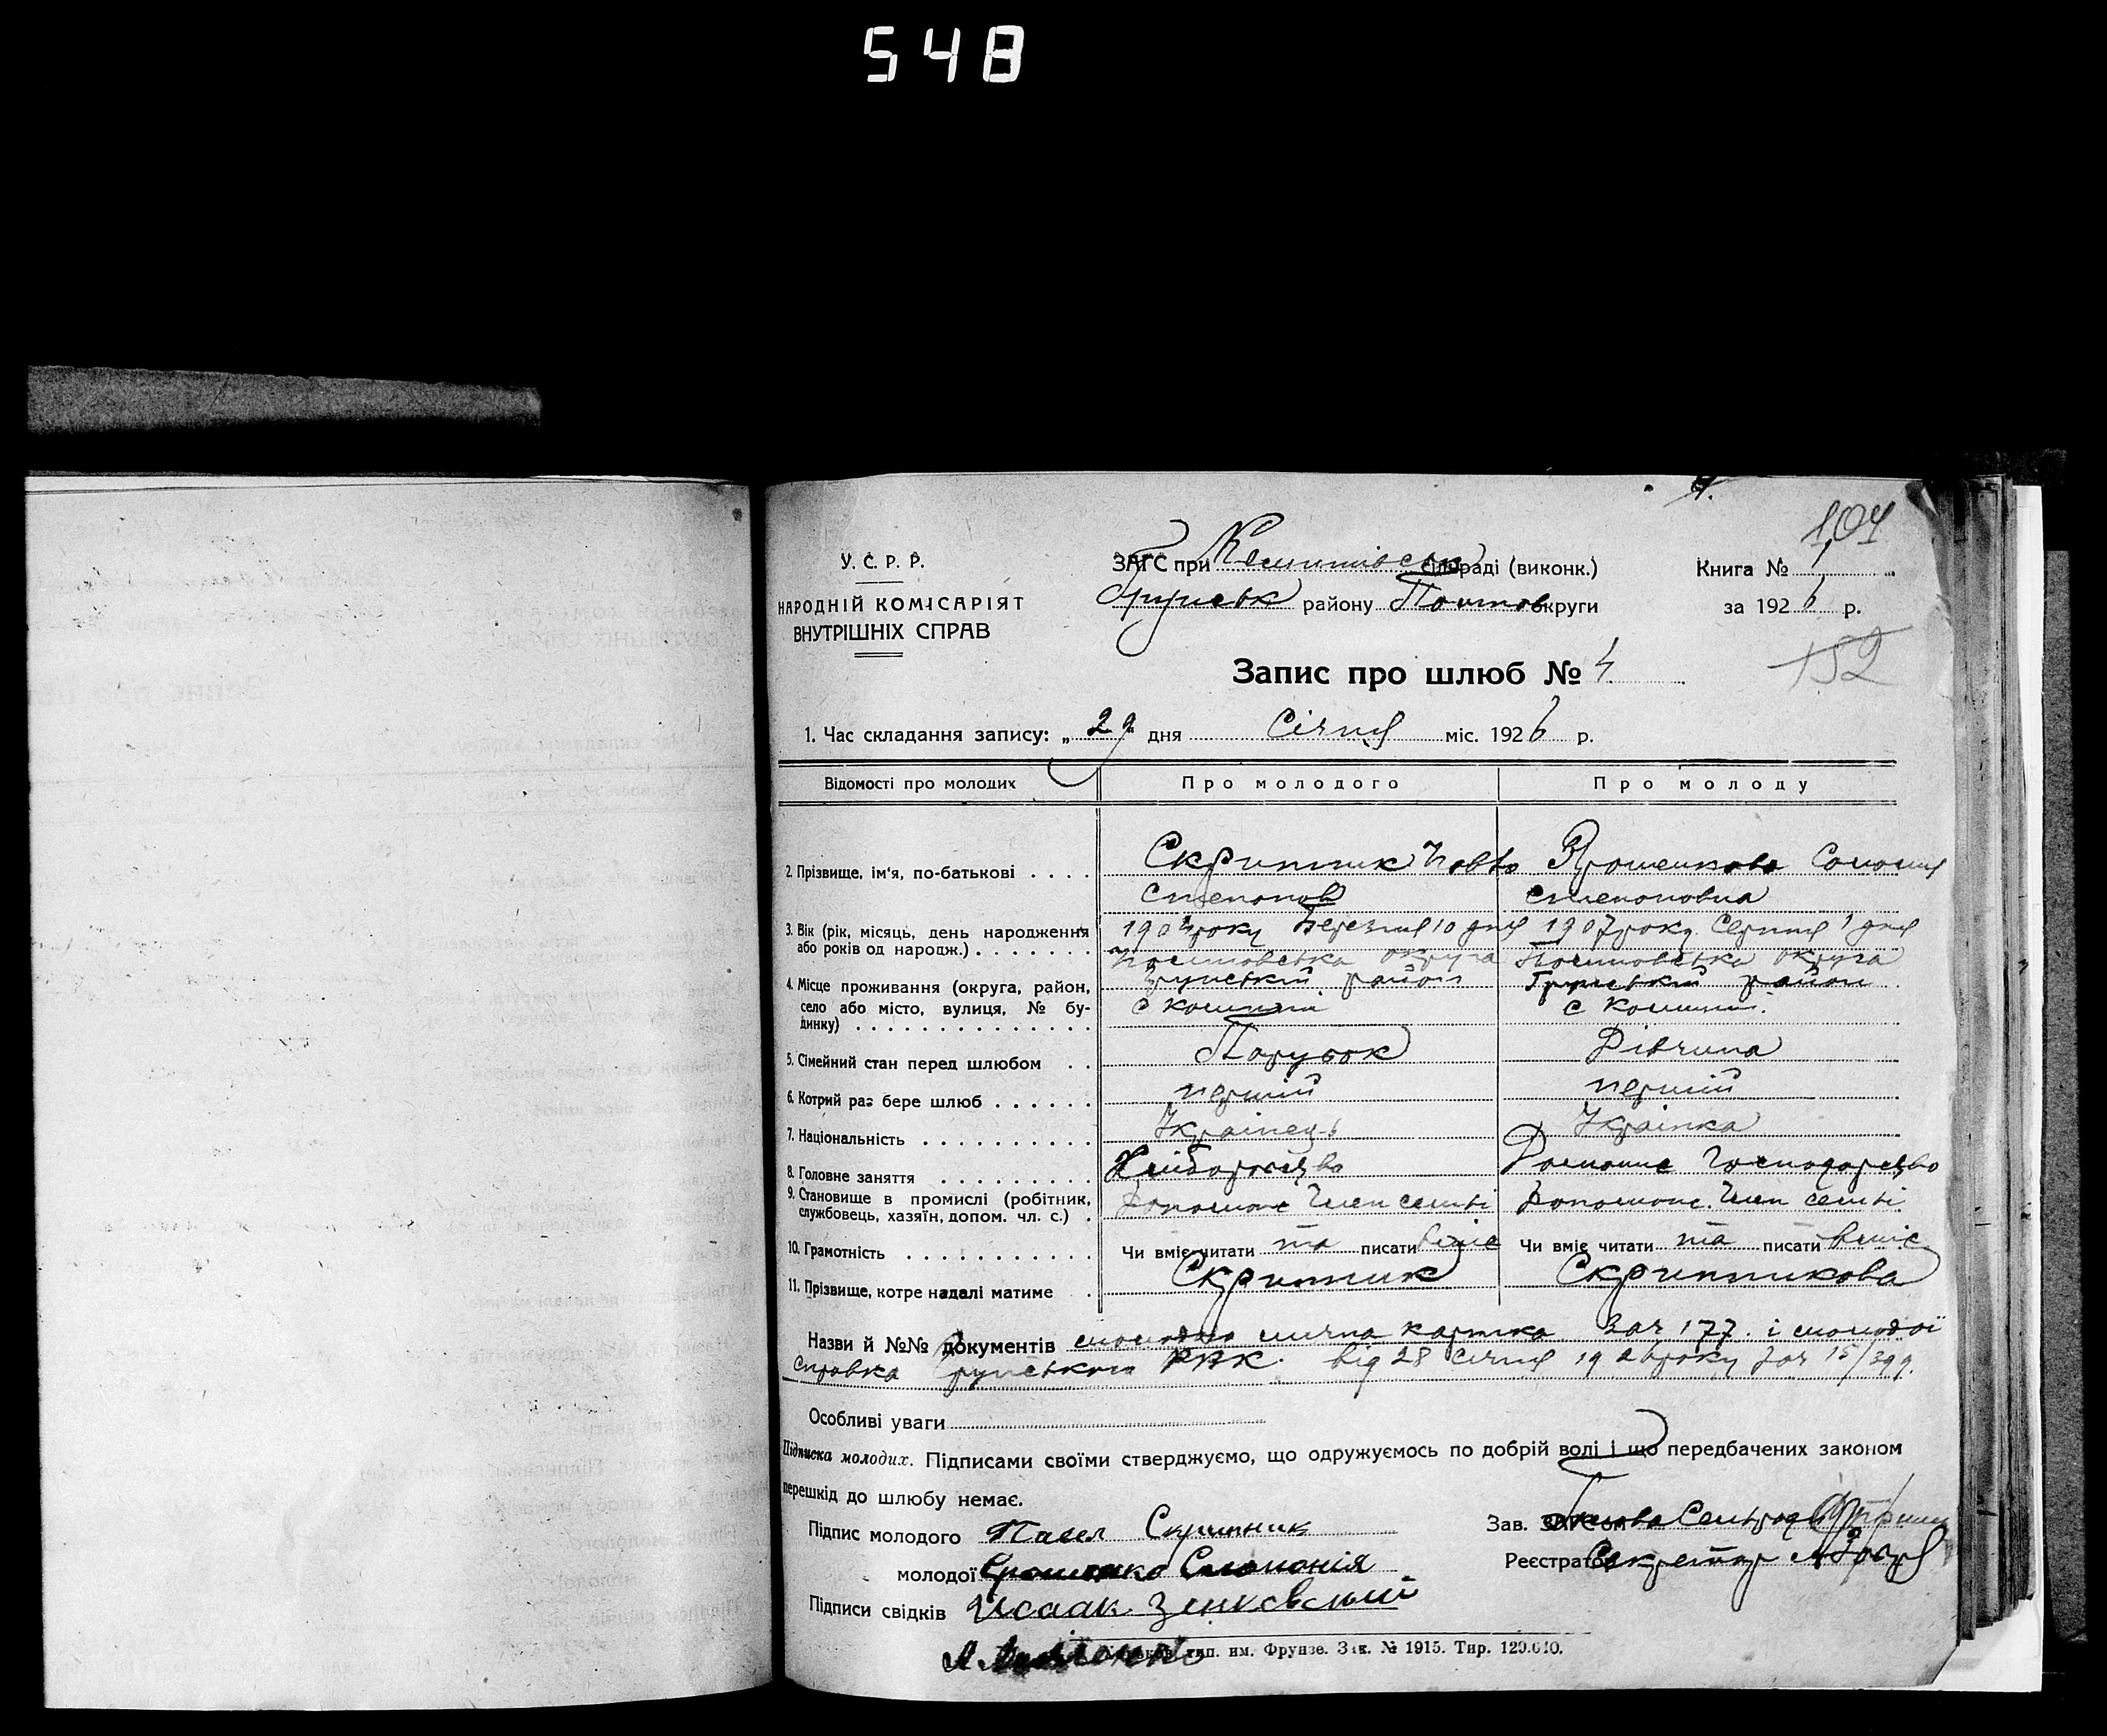 548
104
У. С. Р. Р.
НАРОДНІЙ КОМІСАРІЯТ
ВНУТРІШНІХ СПРАВ
ЗАГС при сільраді (виконк.)
Грунськ району Полтав округи
Книга № 1
за 1926 р.
152
Запис про шлюб № 4
1. Час складання запису: „ 29 " дня Січня міс. 1926 р.
Відомості про молодих Про молодого Про молоду
2. Прізвище, ім'я, по-батькові . . . . Скрипник Ярошенкова Соломія
Степонов Степоновна
3. Вік (рік, місяць, день народження року Березня 10 дня 1907 року Серпня 1 дня
або років од народж.) . . . . . . .
Полтовська округа Полтовська округа
4. Місце проживання (округа, район, Грунський район Грунський район
село або місто, вулиця, № бу- с с
динку) . . . . . . . . . . . . . .
5. Сімейний стан перед шлюбом . . Парубок Дівчина
6. Котрий раз бере шлюб . . . . . . перший перший
7. Національність . . . . . . . . . . Українець Украінка
8. Головне заняття . . . . . . . . . Хліборобство Домошнє Господарство
9. Становище в промислі (робітник,
службовець, хазяїн, допом. чл. с.) . Допомож Член семьі Допомож. Член семьі.
10. Грамотність . . . . . . . . . . . Чи вміє читати та писати вміє Чи вміє читати та писати вміє
11. Прізвище, котре надалі матиме . Скрипник Скрипникова
Назви й №№ документів молодого лична картка зач 177. і молодої
справка Грунського РВК. від 28 січня 1926 року зач 15/399.
Особливі уваги
Підписка молодих. Підписами своїми стверджуємо, що одружуємось по добрій волі і що передбачених законом
перешкід до шлюбу немає.
Підпис молодого Павел Скрипник
Зав. ЗАГС'ом Голова Сельрод
молодої Ярошенко Соломонія
Реєстратор Секретар
Підписи свідків Исаак Зенковський
тип. им. Фрунзе. Зак. № 1915. Тир. 120.010.